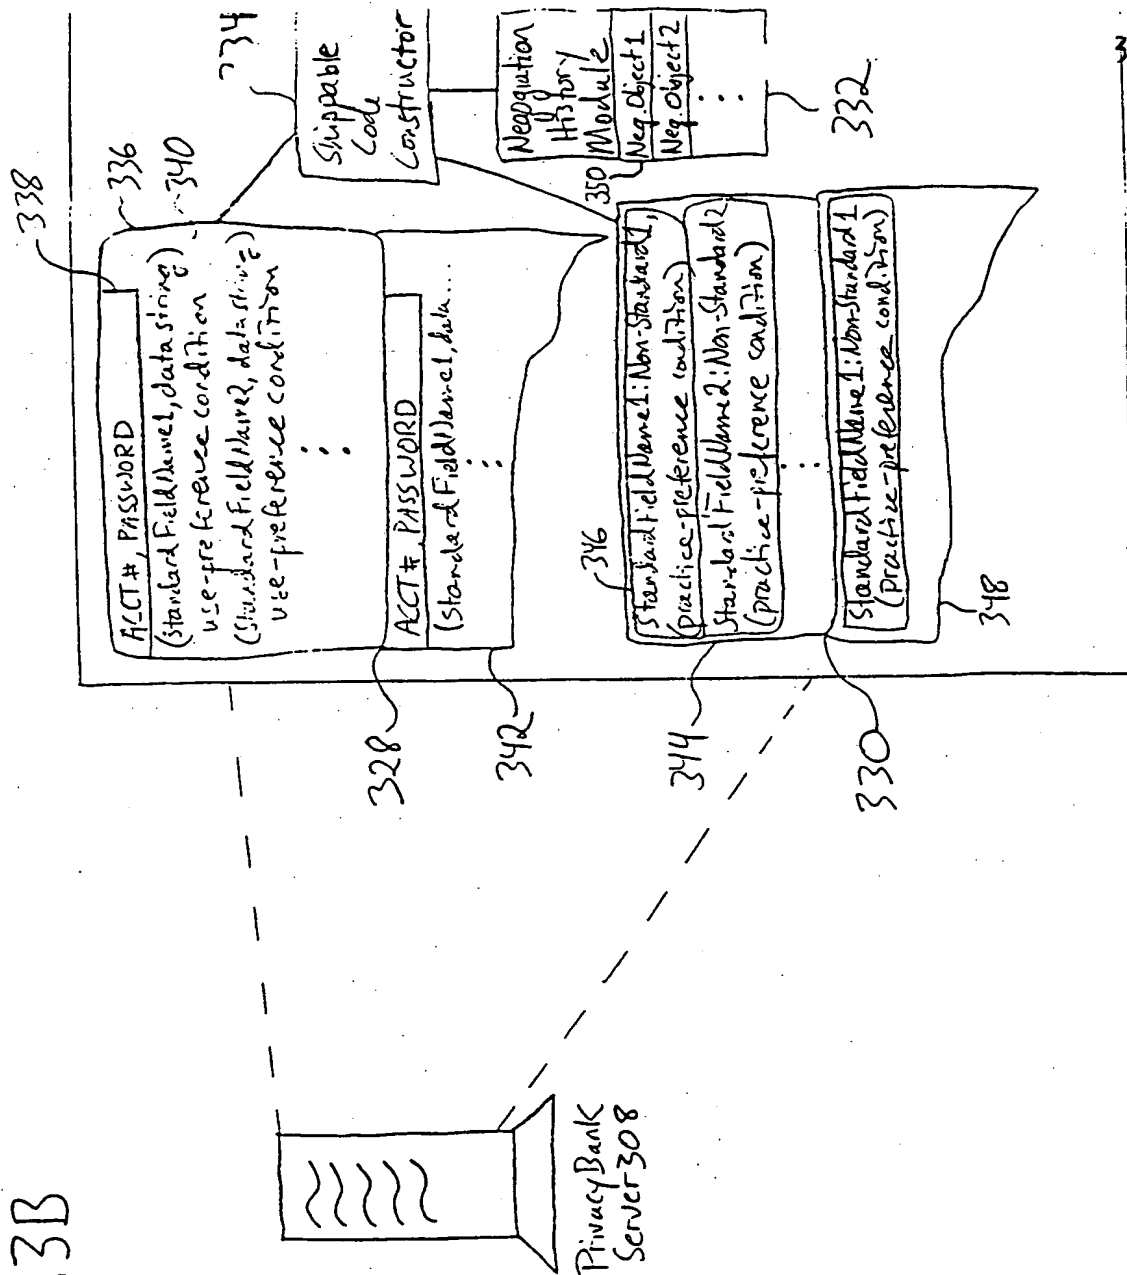 .3B
PrivacyBank
Server 308
338
336
340
ACCT #, PASSWORD
(StandardFieldName1, datastring)
use-preference condition
(StandardFieldName2, datastring)
use-preference condition
⋮
ACCT #, PASSWORD
(StandardFieldName1, data...
⋮
328
342
334
Shippable
Code
Constructor
Negogiation
History
Module
350
Neg. Object 1
Neg. Object 2
⋮
332
346
StandardFieldName1:Non-Standard1,
(practice-preference condition)
StandardFieldName2:Non-Standard2
(practice-preference condition)
⋮
StandardFieldName1:Non-Standard1
(practice-preference condition)
344
330
348